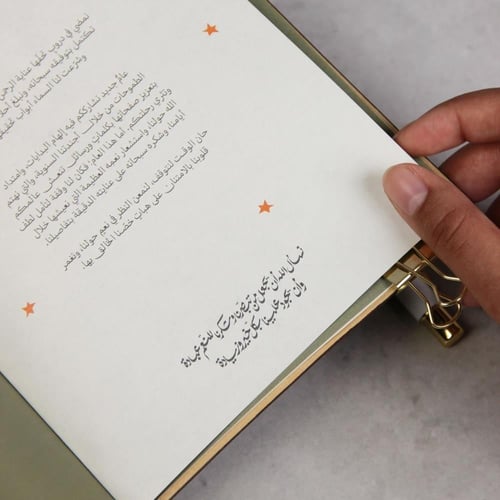 نمضي في دروب تحفّها عناية الرحمن
تكتمل بتوفيقه سبحانه، ونبلغ أحلا
وشُرّعت لنا السماء أبواب
عامٌ جديد نشارككم فيه إلهام البدايات وامتداد
الطموحات من خلال أجندتنا السنوية، والتي نهتم
بتعزيز صفحاتها بكلمات ورسائل تعيش عالمكم
وتثري رحلتكم. أما هذا العام، فكان لنا وقفة لتأمل لطف
الله حولنا، واستشعار نعمه العظيمة التي نعيشها خلال
أيامنا، وشكره سبحانه على عنايته الدقيقة بتفاصيلنا.
حان الوقت لنتوقف، لنمعن النظر في نعمٍ حولنا، ونغمر
قلوبنا بالامتنان على هباتٍ خصّنا الخالق بها.
نسأل الله أن يجعل من تبصّرنا وسكن للنعم عبادة
وأن يجود علينا بكل خير وزيادة